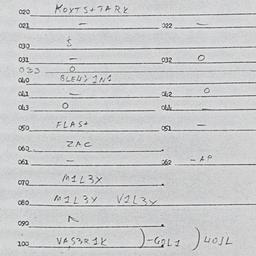 020 KOYTS+TARK
021 — 022 —
030 $
031 — 032 0
033 0
040 BLE4Y1N1
041 — 042 0
043 0 044 —
050 FLAS+ 051 —
060 ZAC
061 — 062 -AP
070 M1L3X
080 M1L3Y V1L3X
090
100 VAS3R1K )-G2L1 )401L